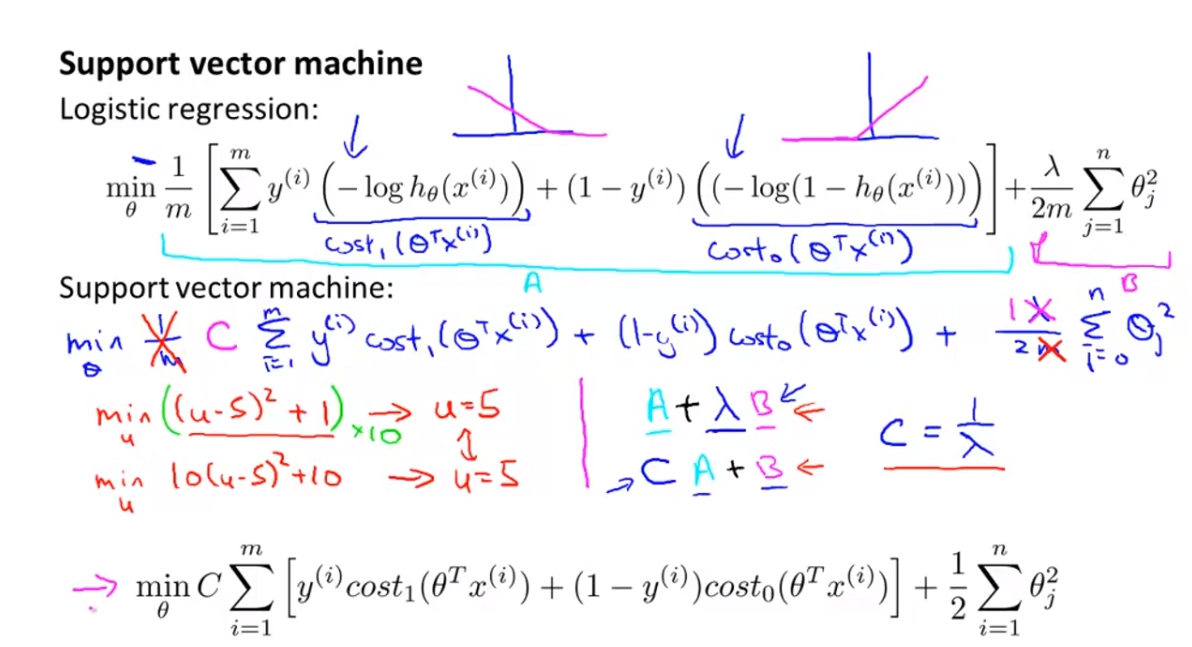 Support vector machine
Logistic regression:
min_θ 1/m [ ∑_{i=1}^{m} y^{(i)} (− log h_θ(x^{(i)})) + (1 − y^{(i)}) ((− log(1 − h_θ(x^{(i)})))) ] + λ/2m ∑_{j=1}^{n} θ_j^2
cost₁(θᵀx^{(i)}) cost₀(θᵀx^{(i)})
A B
Support vector machine:
min_θ 1/m C ∑_{i=1}^{m} y^{(i)} cost₁(θᵀx^{(i)}) + (1-y^{(i)}) cost₀(θᵀx^{(i)}) + 1 λ/2 m ∑_{i=0}^{n} θ_j^2
min_u ((u-5)² + 1) ×10 → u=5
min_u 10(u-5)²+10 → u=5
A + λ B ←
→ C A + B ←
C = 1/λ
→ min_θ C ∑_{i=1}^{m} [ y^{(i)} cost₁(θᵀx^{(i)}) + (1 − y^{(i)}) cost₀(θᵀx^{(i)}) ] + 1/2 ∑_{i=1}^{n} θ_j^2